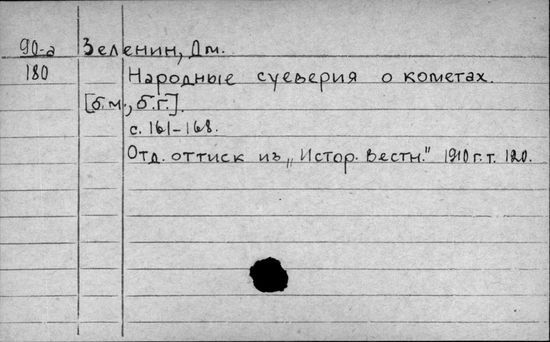 90-а Зеленин, Дм.
180 Народные суеверия о кометах.
[б.м., б.г.].
с. 161-168.
Отд. оттиск из „Истор. Вестн." 1910 г. т. 120.